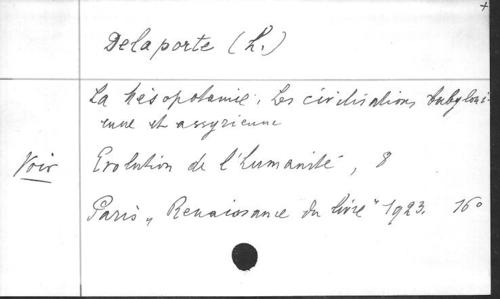 +
Delaporte (L.)
La Mésopotamie. Les civilisations babyloni-
enne et assyrienne
Voir Evolution de l'humanité, 8
Paris, "Renaissance du livre" 1923. 16°